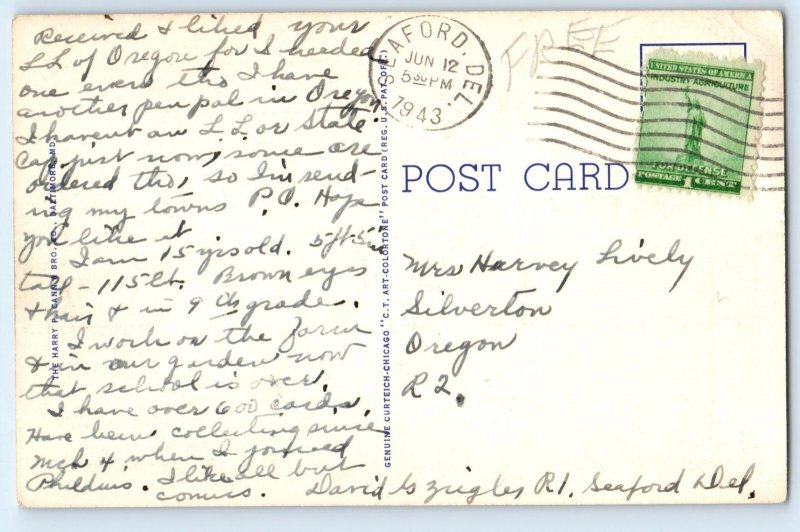 Received & liked your
L L of Oregon for I needed
one even tho I have
another pen pal in Oregon
I havent an L.L. or State
Cap just now, some are
ordered tho, so I'm send-
ing my towns P.O. Hope
you like it
I am 15 yrs old. 5ft 5in
tall - 115 lb. Brown eyes
& hair & in 9th grade.
I work on the farm
& in our garden now
that school is over.
I have over 600 cards.
Have been collecting since
Mch 4 when I joined
I like all but
comics.
THE HARRY P. CANN & BRO. CO., BALTIMORE, MD.
GENUINE CURTEICH-CHICAGO "C.T. ART-COLORTONE" POST CARD (REG. U.S. PAT. OFF.)
SEAFORD, DEL.
JUN 12
5 30 PM
1943
FREE
UNITED STATES OF AMERICA
INDUSTRY AGRICULTURE
FOR DEFENSE
POSTAGE 1 CENT
POST CARD
Mrs Harvey Lively
Silverton
Oregon
R 2.
David G Zeigler R1, Seaford Del.